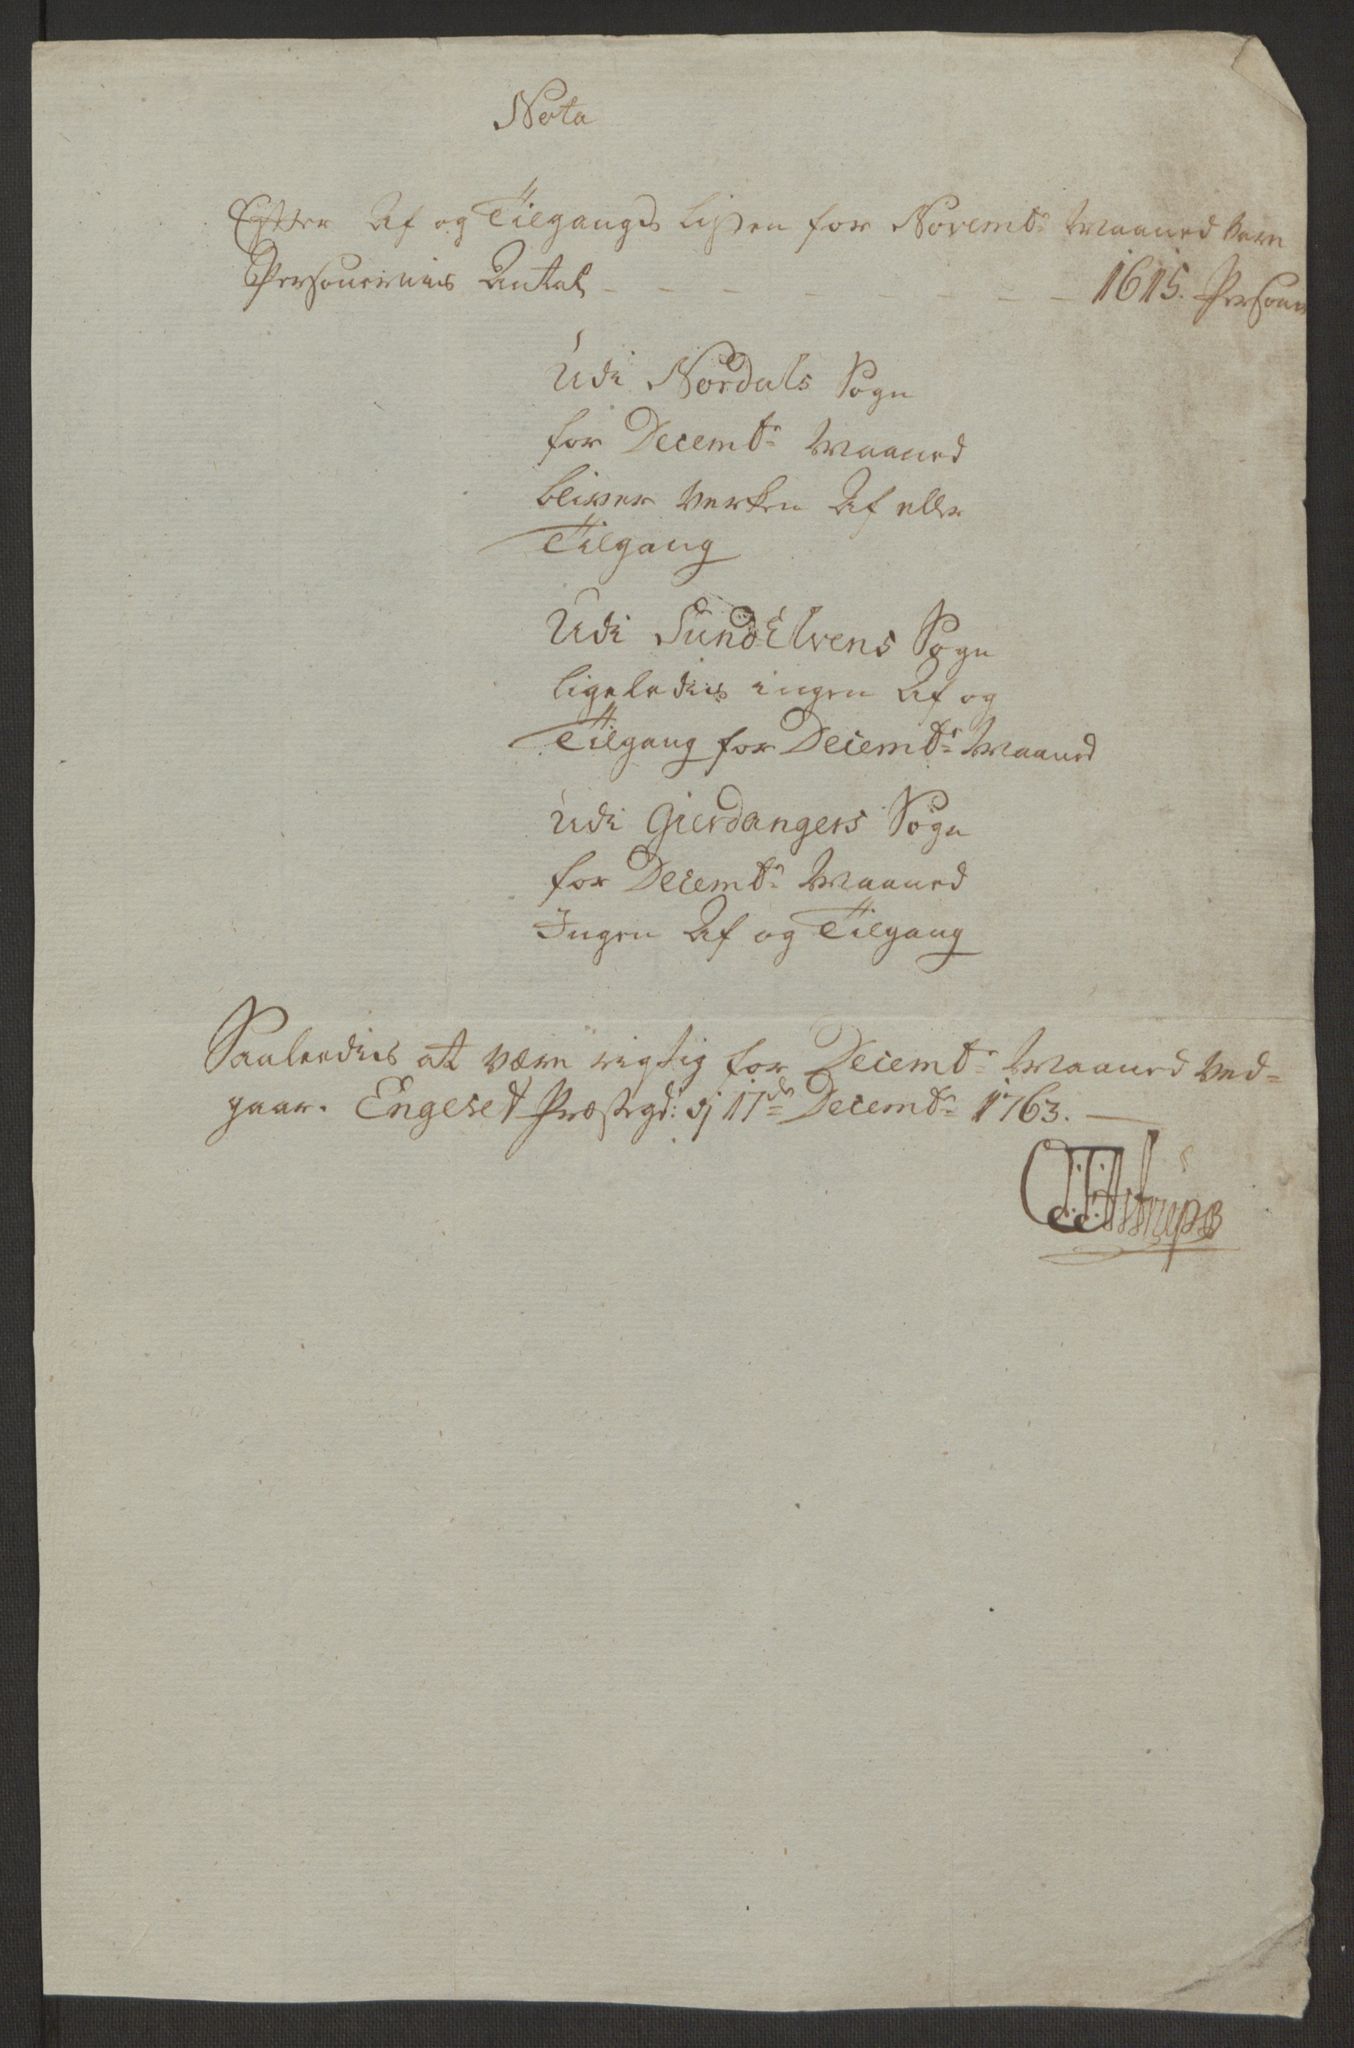 Nota
Efter Af og Tilgangs Listen for Novembr Maaned vare
Personernis Antal - - - - - - - - 1615. Person
Udi Nordals Sogn
for Decembr Maaned
bliver verken Af eller
Tilgang
Udi SundElvens Sogn
ligeledis ingen Af og
Tilgang for Decembr Maaned
Udi Gierdangers Sogn
for Decembr Maaned
Ingen Af og Tilgang
Saaleedis at være rigtig for Decembr Maaned ved-
gaar. Engeset Præstegd: d 17de Decembr 1763.
Astrup